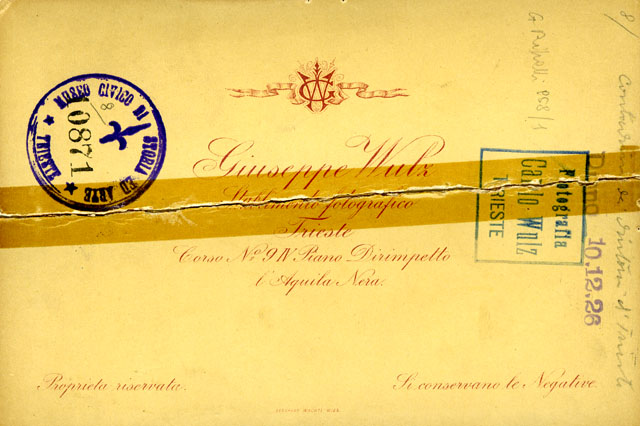 GW
Giuseppe Wulz
Stabilimento fotografico
Trieste
Corso N.º 9 IV Piano Dirimpetto
l'Aquila Nera.
Proprietà riservata.
Si conservano le Negative
MUSEO CIVICO DI STORIA ED ARTE
★ TRIESTE ★
8/
10871
Fotografia
Carlo Wulz
TRIESTE
10.12.26
8/
958/1